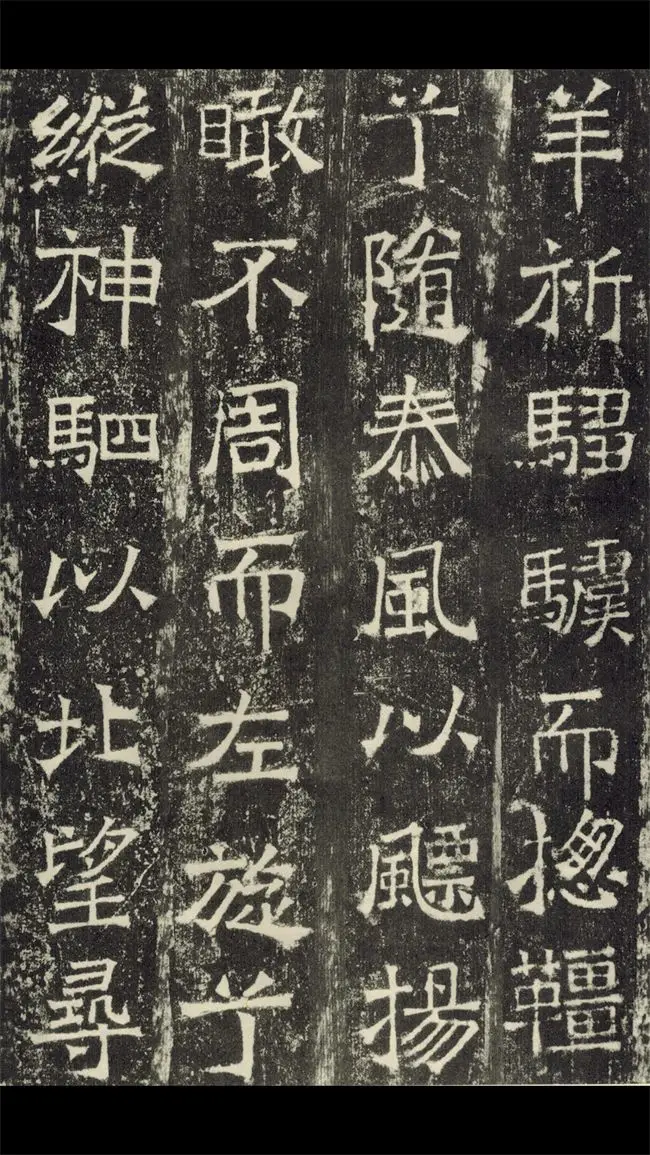 羊祈騶而揔韁
兮隨泰風以飃揚
瞰不周而左旋兮
縱神駟以北望尋